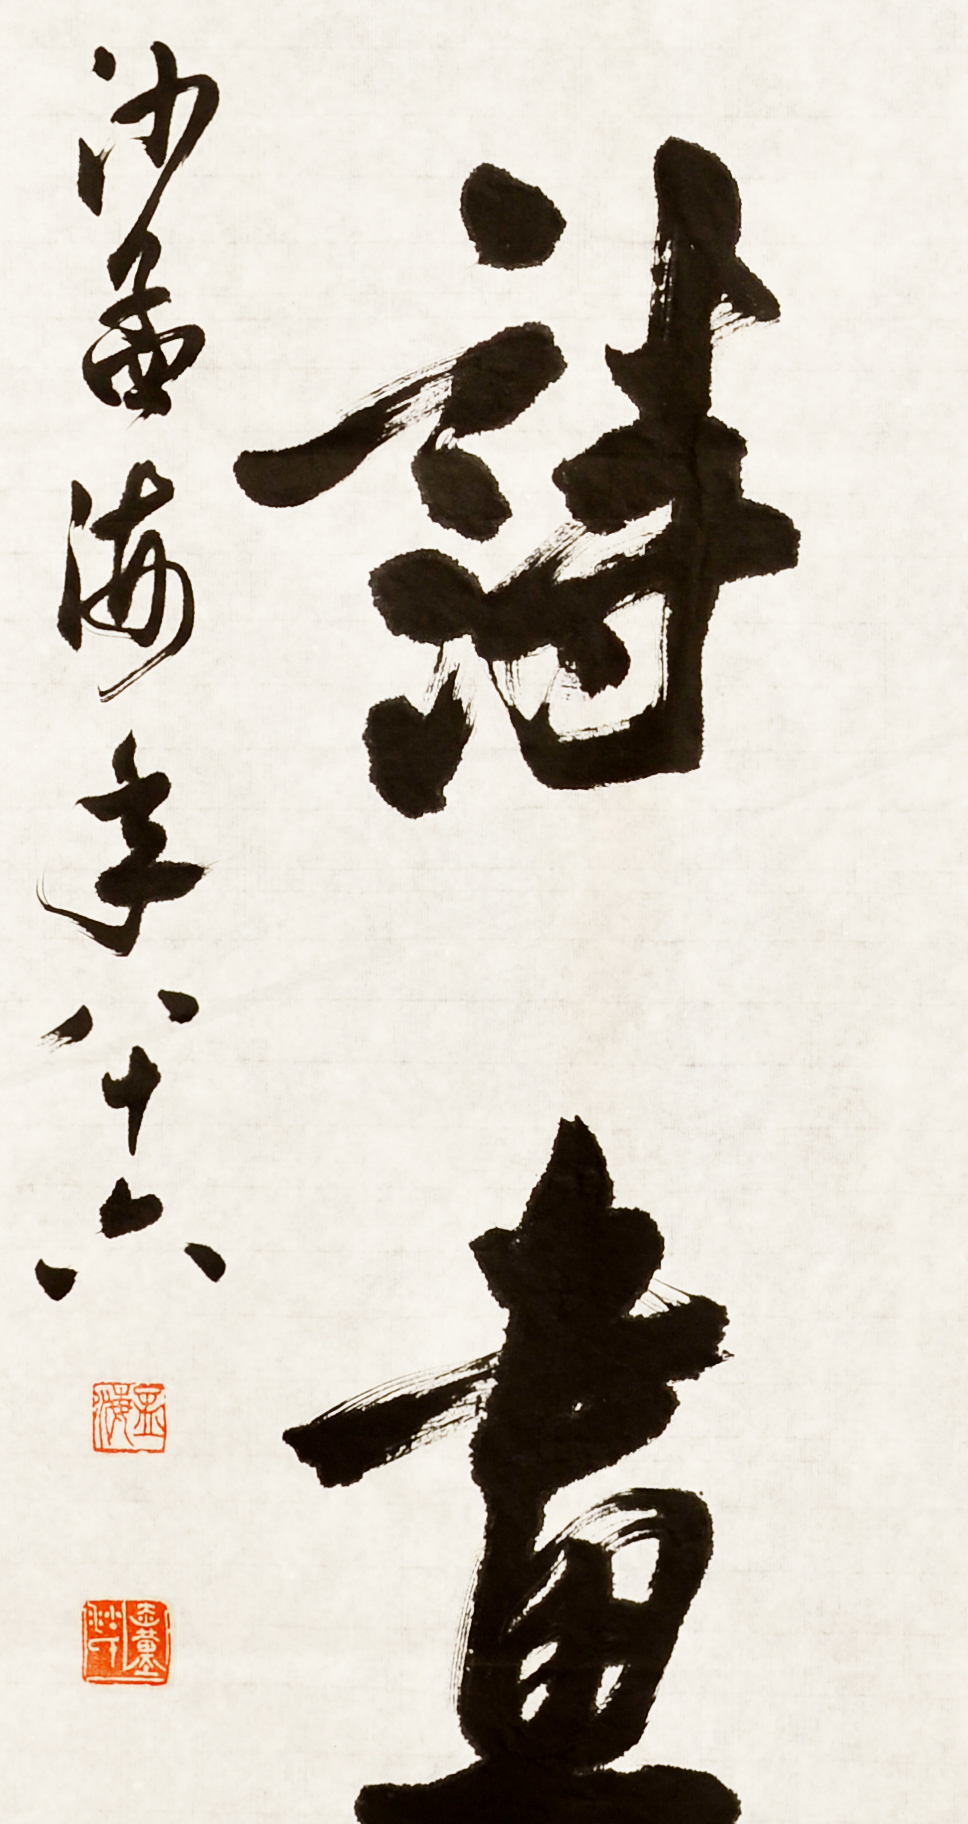 詩畫
沙孟海年八十六
孟海